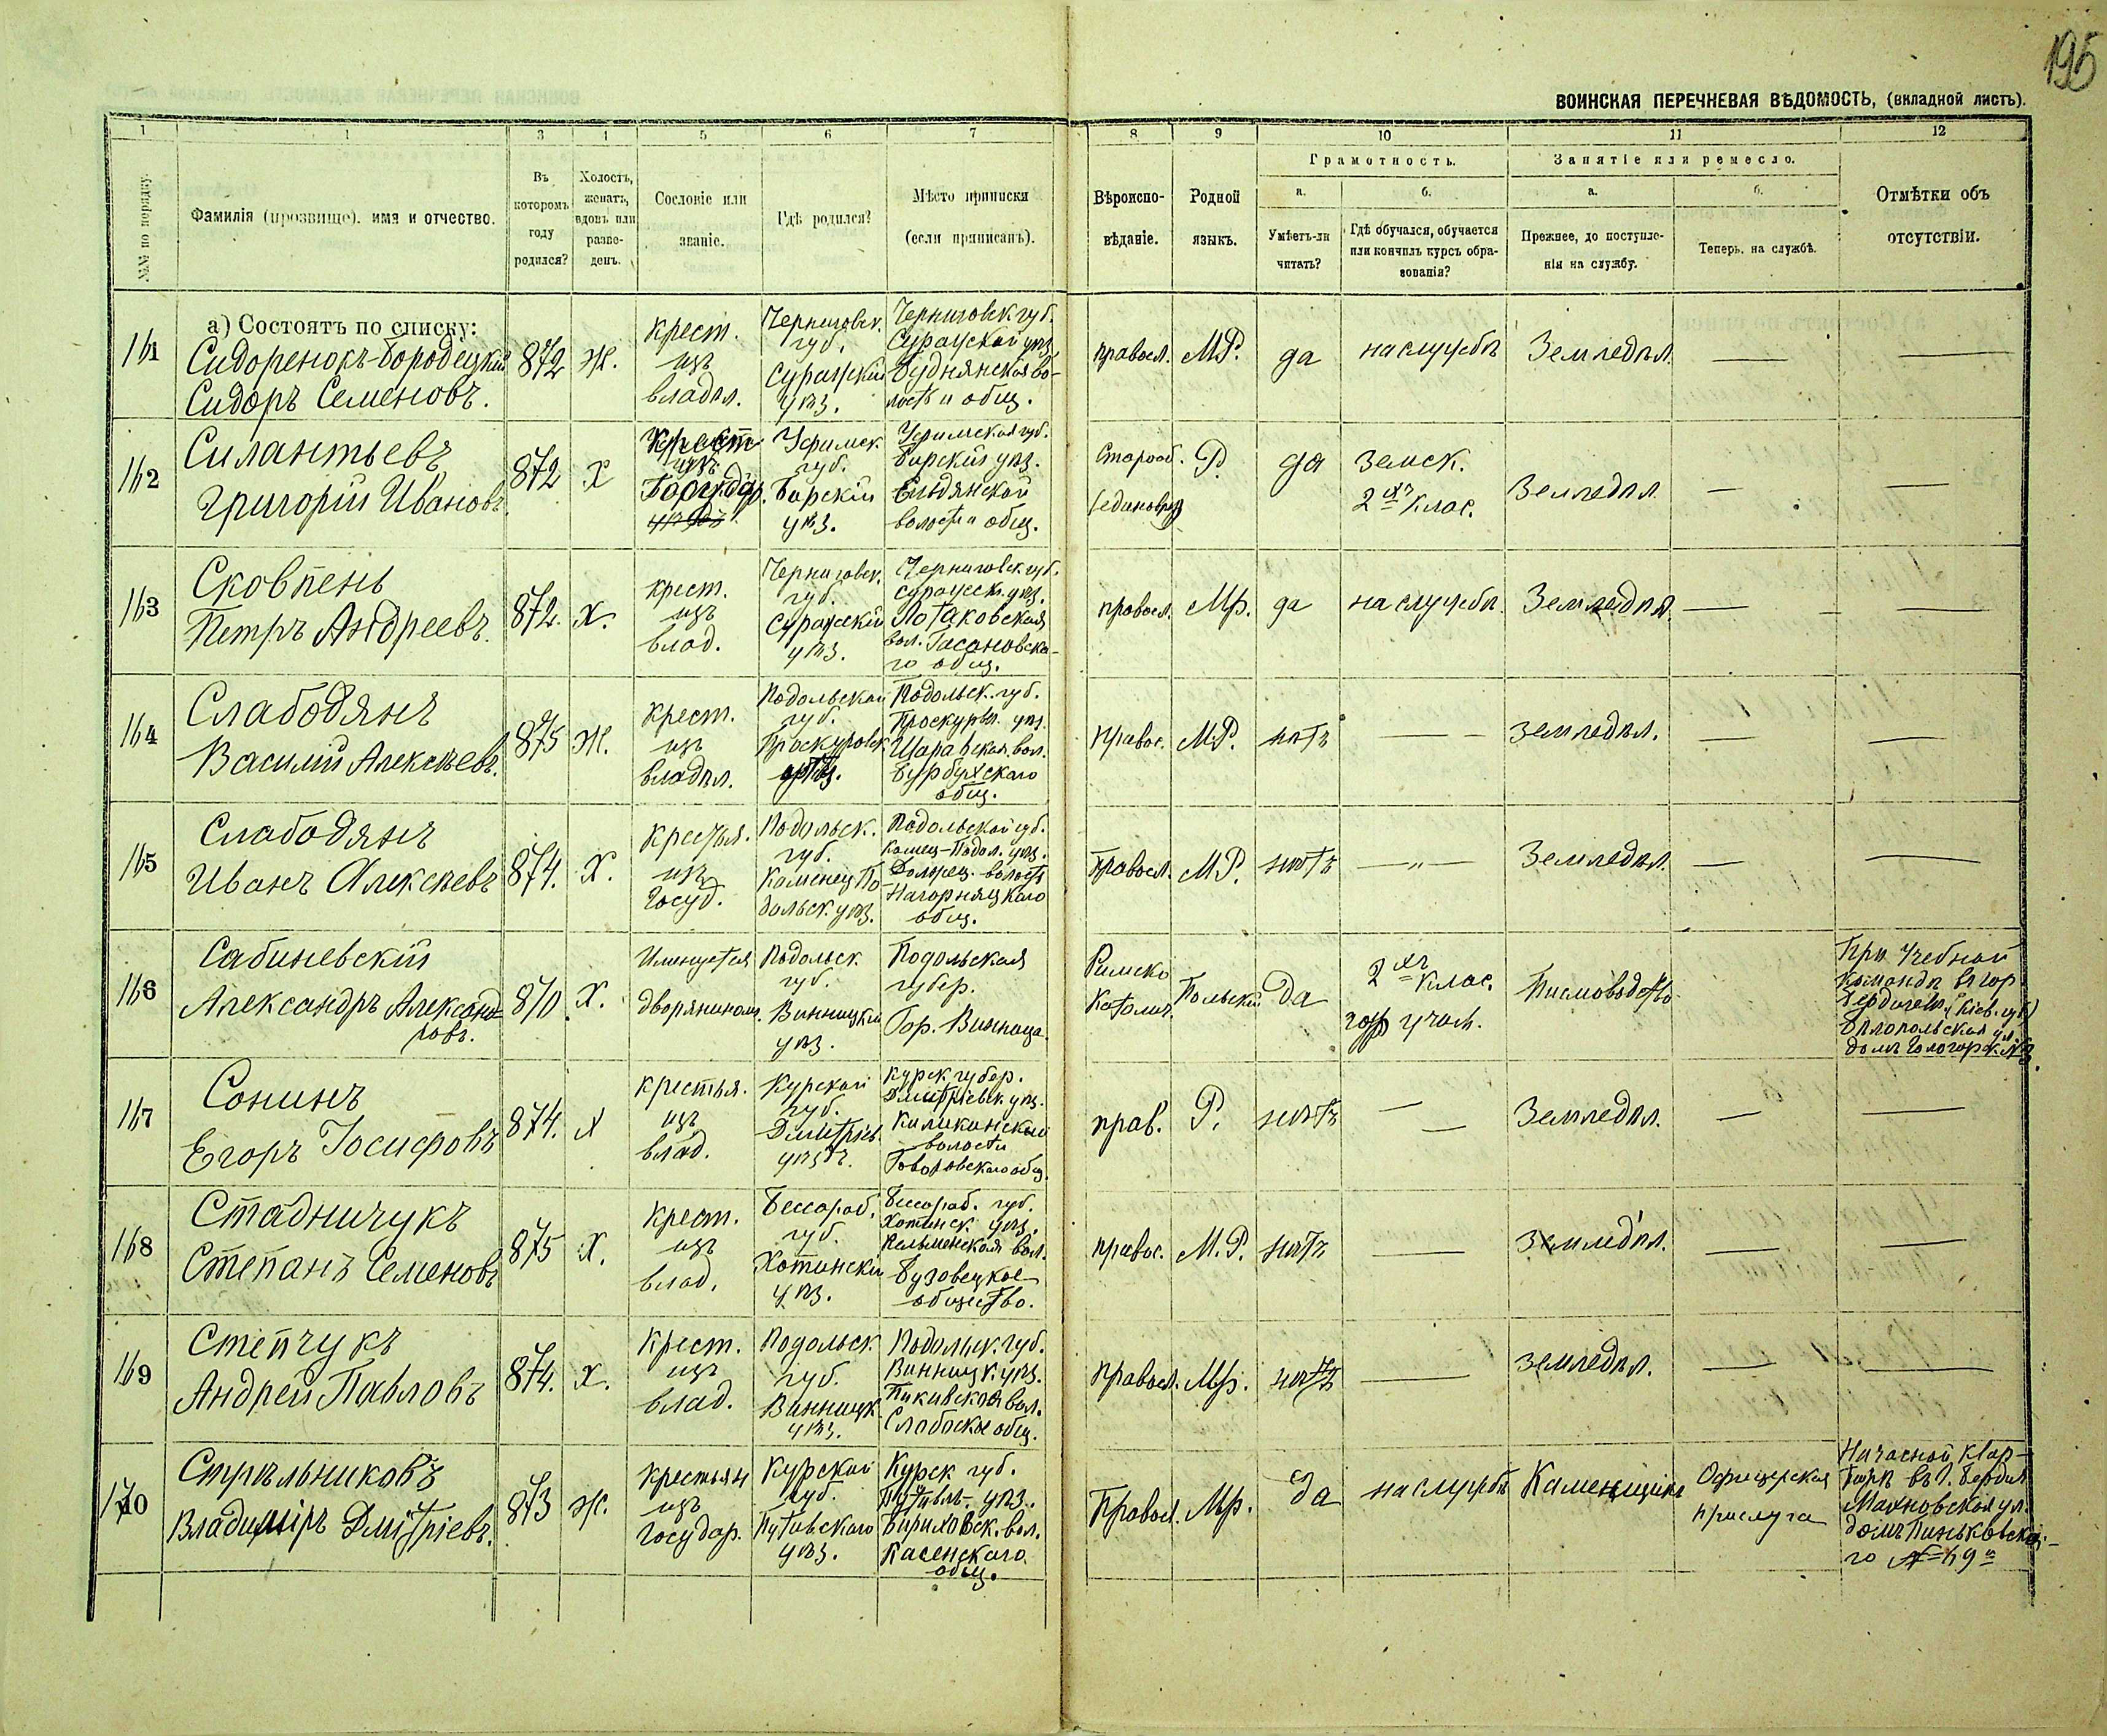 195
ВОИНСКАЯ ПЕРЕЧНЕВАЯ ВѢДОМОСТЬ, (вкладной листъ).
1 1 3 4 5 6 7 8 9 10 11 12
№№ по порядку.
Фамилія (прозвище). имя и отчество.
Въ которомъ году родился?
Холостъ, женатъ, вдовъ или разведенъ.
Сословіе или званіе.
Гдѣ родился?
Мѣсто приписки (если приписанъ).
Вѣроисповѣданіе.
Родной языкъ.
Грамотность.
а. Умѣетъ-ли читать?
б. Гдѣ обучался, обучается или кончилъ курсъ образованія?
Занятіе или ремесло.
а. Прежнее, до поступленія на службу.
б. Теперь, на службѣ.
Отмѣтки объ отсутствіи.
а) Состоятъ по списку:
161 Сидоренокъ-Бородецкій Сидоръ Семеновъ. 872 Ж. Крест. изъ владѣл. Черниговск. губ. Суражскій уѣз. Черниговск. губ. Суражской уѣз. Буднянская волость и общ. правосл. М.Р. да на службѣ Земледѣл. — —
162 Силантьевъ Григорій Ивановъ. 872 Х Крест изъ Уфимск. губ. Бирскій уѣз. Уфимская губ. Бирскій уѣз. волости и общ. Старооб. Р. да Земск. 2хъ клас. Земледѣл. — —
163 Сковпень Петръ Андреевъ. 872. Х. крест. изъ влад. Черниговск. губ. Суражскій уѣз. Черниговск. губ. суражск. уѣз. Лотаковская вол. Гасановскаго общ. правосл. Мр. да на службѣ. Земледѣл. — —
164 Слабодянъ Василій Алексѣевъ. 875 Ж. крест. изъ владѣл. Подольской губ. Проскуровск. Подольск. губ. Проскуров. уѣз. Шаравская вол. общ. правос. М.Р. нѣтъ — — земледѣл. — —
165 Слабодянъ Иванъ Алексѣевъ 874. Х. крестья. изъ госуд. Подольск. губ. Каменец Подольск. уѣз. Подольской губ. Камец-Подол. уѣз. волость Нагорняцкаго общ. Правосл. М.Р. нѣтъ —„— Земледѣл. — —
166 Сабиневскій Александръ Александровъ. 870. Х. дворянином. Подольск. губ. Винницкій уѣз. Подольская губер. Гор. Винница. Римско Католич. Польскій да 2хъ клас. гор. учил. Писмоводство При Учебной командѣ въ гор. Бердичевѣ (Кіев. губ.) Бѣлопольская ул. домъ
167 Сонинъ Егоръ Іосифовъ 874. Х крестья. изъ влад. Курской губ. Дмитріев. уѣздъ. Курск губер. Дмитріевск. уѣз. волости общ. прав. Р. нѣтъ — — Земледѣл. — —
168 Стадничукъ Степанъ Семеновъ 875 Х. крест. изъ влад. Бессараб. губ. Хотинскій уѣз. Бессараб. губ. Хотинск уѣз. Кельменская вол. Бузовецкое общество. правос. М.Р. нѣтъ — земледѣл. — —
169 Степчукъ Андрей Павловъ 874. Х. Крест. изъ влад. Подольск. губ. Винницк уѣз. Подольск. губ. Винницк. уѣз. Пикивская вол. Слабоское общ. Правосл. Мр. нѣтъ — земледѣл. — —
170 Стрѣльниковъ Владиміръ Дмитріевъ. 873 Ж. крестьян изъ государ. Курской губ. Путивскаго уѣз. Курск губ. Путивль. уѣз. вол. общ. Правосл. Мр. да на службѣ Каменщикъ Офицерская прислуга На часной квартирѣ въ г. Бердич Махновская ул. домъ Пиньковскаго № 49